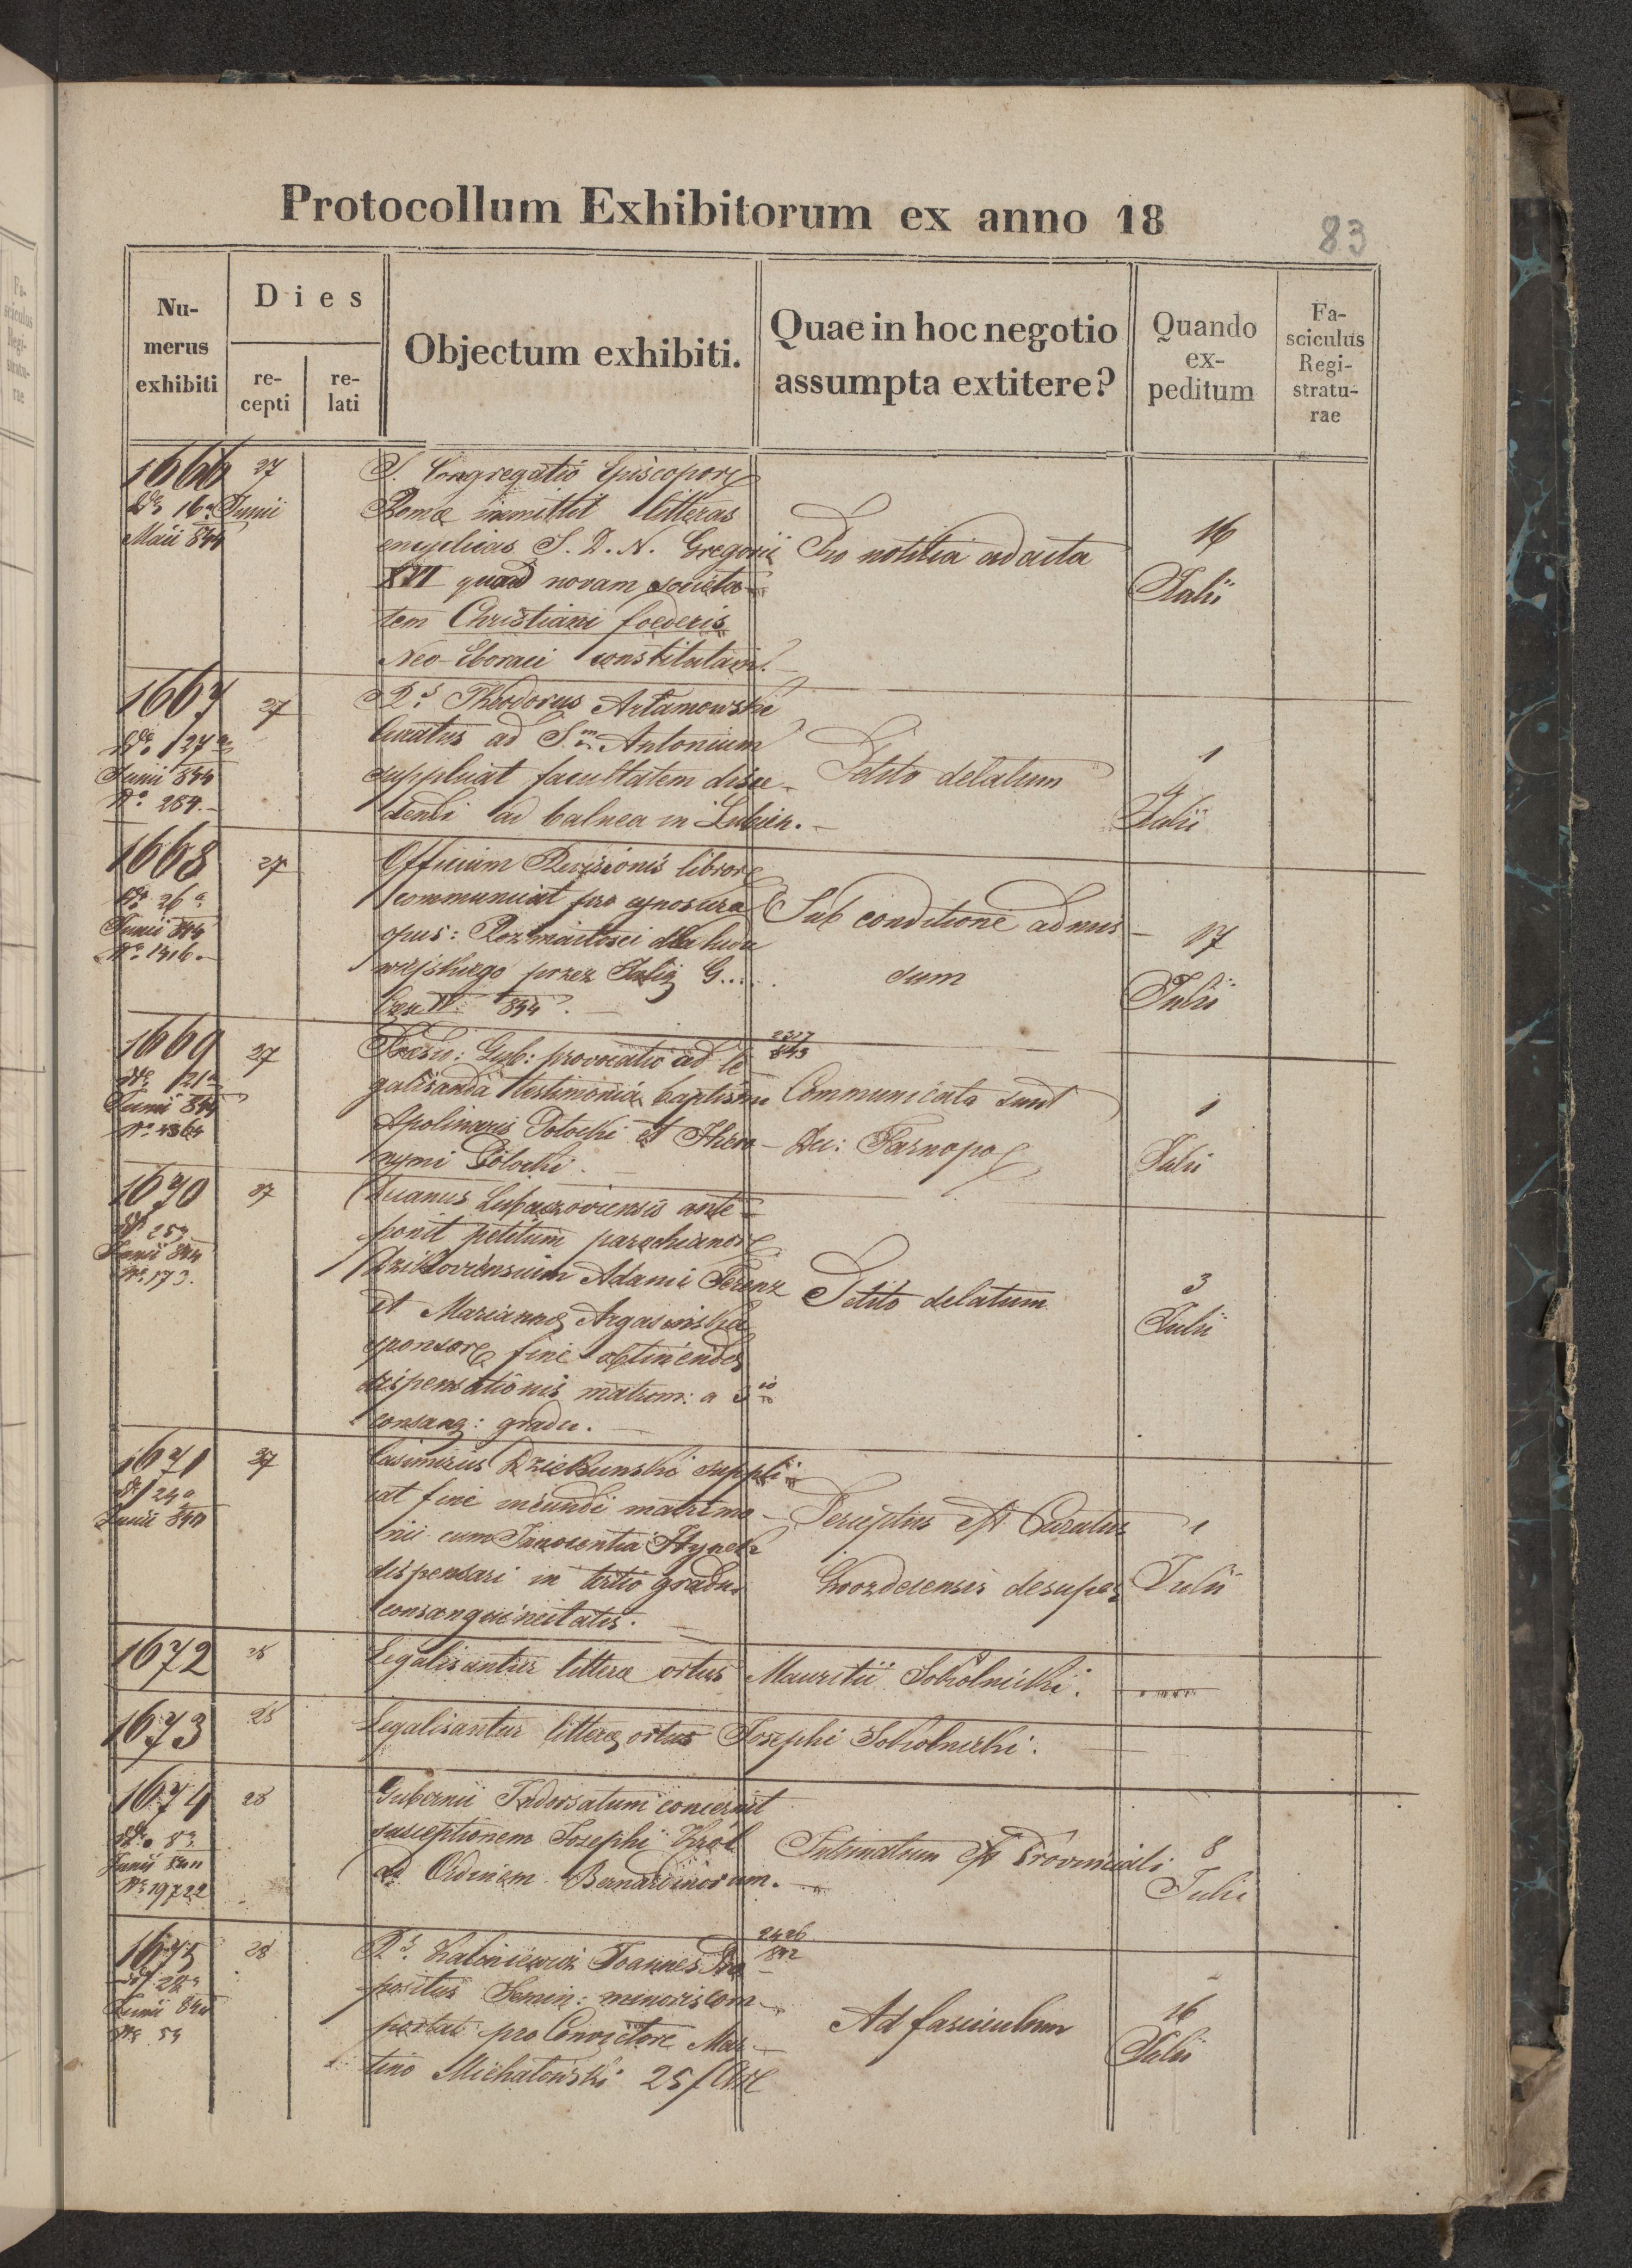 Protocollum Exhibitorum ex anno 18
83
Nu-
merus
exhibiti
Dies
re-
cepti
re-
lati
Objectum exhibiti.
Quae in hoc negotio
assumpta extitere?
Quando
ex-
peditum
Fa-
sciculus
Regi-
stratu-
rae
1666
27
Junii
16a
Maii 844
S. Congregatio Episcopor
Romæ immittit litteras
encyclicas S. D. N. Gregorii
XVI quoad novam societa-
tem Christiani foederis
Neo-Eboraci constitutam.
Pro notitia ad acta
16
Julii
1667
27
27a
Junii 844
No 264.
Rds Theodorus Artamowski
Curatus ad Sm Antonium
supplicat facultatem disce-
dendi ad balnea in Lubien.
Petito delatum
1
4
Julii
1668
27
26a
Junii 844
No 1416.
Officium Revisionis libror
communicat pro cynosura
opus: Rozmaitości dla ludu
wiejskiego przez Julię G....
844.
Sub conditione admis-
sum
17
Julii
1669
27
21a
Junii 844
Præsid: Gub: provocatio ad le-
galisanda testimonia baptismi
Apolinaris Potocki et Hiero-
nymi Potocki.
2377
843
Communicata sunt
Dec: Tarnopo
1
Julii
1670
27
25a
Junii 844
No 173.
Decanus Lubaczoviensis ante-
ponit petitum parochianor
Adami Ferenz
et Mariannæ Argasinska
sponsor fine obtinendæ
dispensationis matrim: a 3io
consang: gradu.
Petito delatum
3
Julii
1671
27
24a
Junii 844
Casimirus Dziekunski suppli-
cat fine ineundi matrimo-
nii cum Innocentia
dispensari in tertio gradu
consanguineitatis.
est Curatus
desuper
1
Julii
1672
28
Legalisantur litteræ ortus Mauritii Sokolnicki.
1673
28
Legalisantur litteræ ortus Josephi Sokolnicki.
1674
28
8a
Junii 844
No 19722
Gubernii Indorsatum concernit
susceptionem Josephi Krol
ad Ordinem Bernardinorum.
Intimatum est Provinciali
8
Julii
1675
28
28a
Junii 844
No 59
Rds Kaloniewicz Joannes Præ-
positus Semin: minoris com-
portat pro Convictore Mar-
tino Michałowski 25 f
2426
842
Ad fasciculum
16
Julii